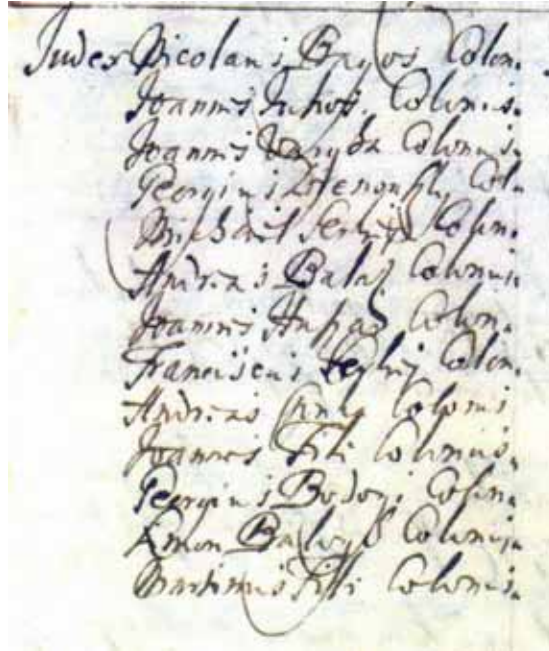 Judex Nicolaus Bagos Colon.
Joannes Juhos Colonus.
Joannes Vargha Colonus.
Georgius Colo
Michael Colon.
Andreas Balas Colonus.
Joannes Colon.
Franciscus Colon.
Andreas Colonus
Joannes Fili Colonus.
Georgius Bodogi Colon.
Simon Balogh Colonus.
Martinus Fili Colonus.